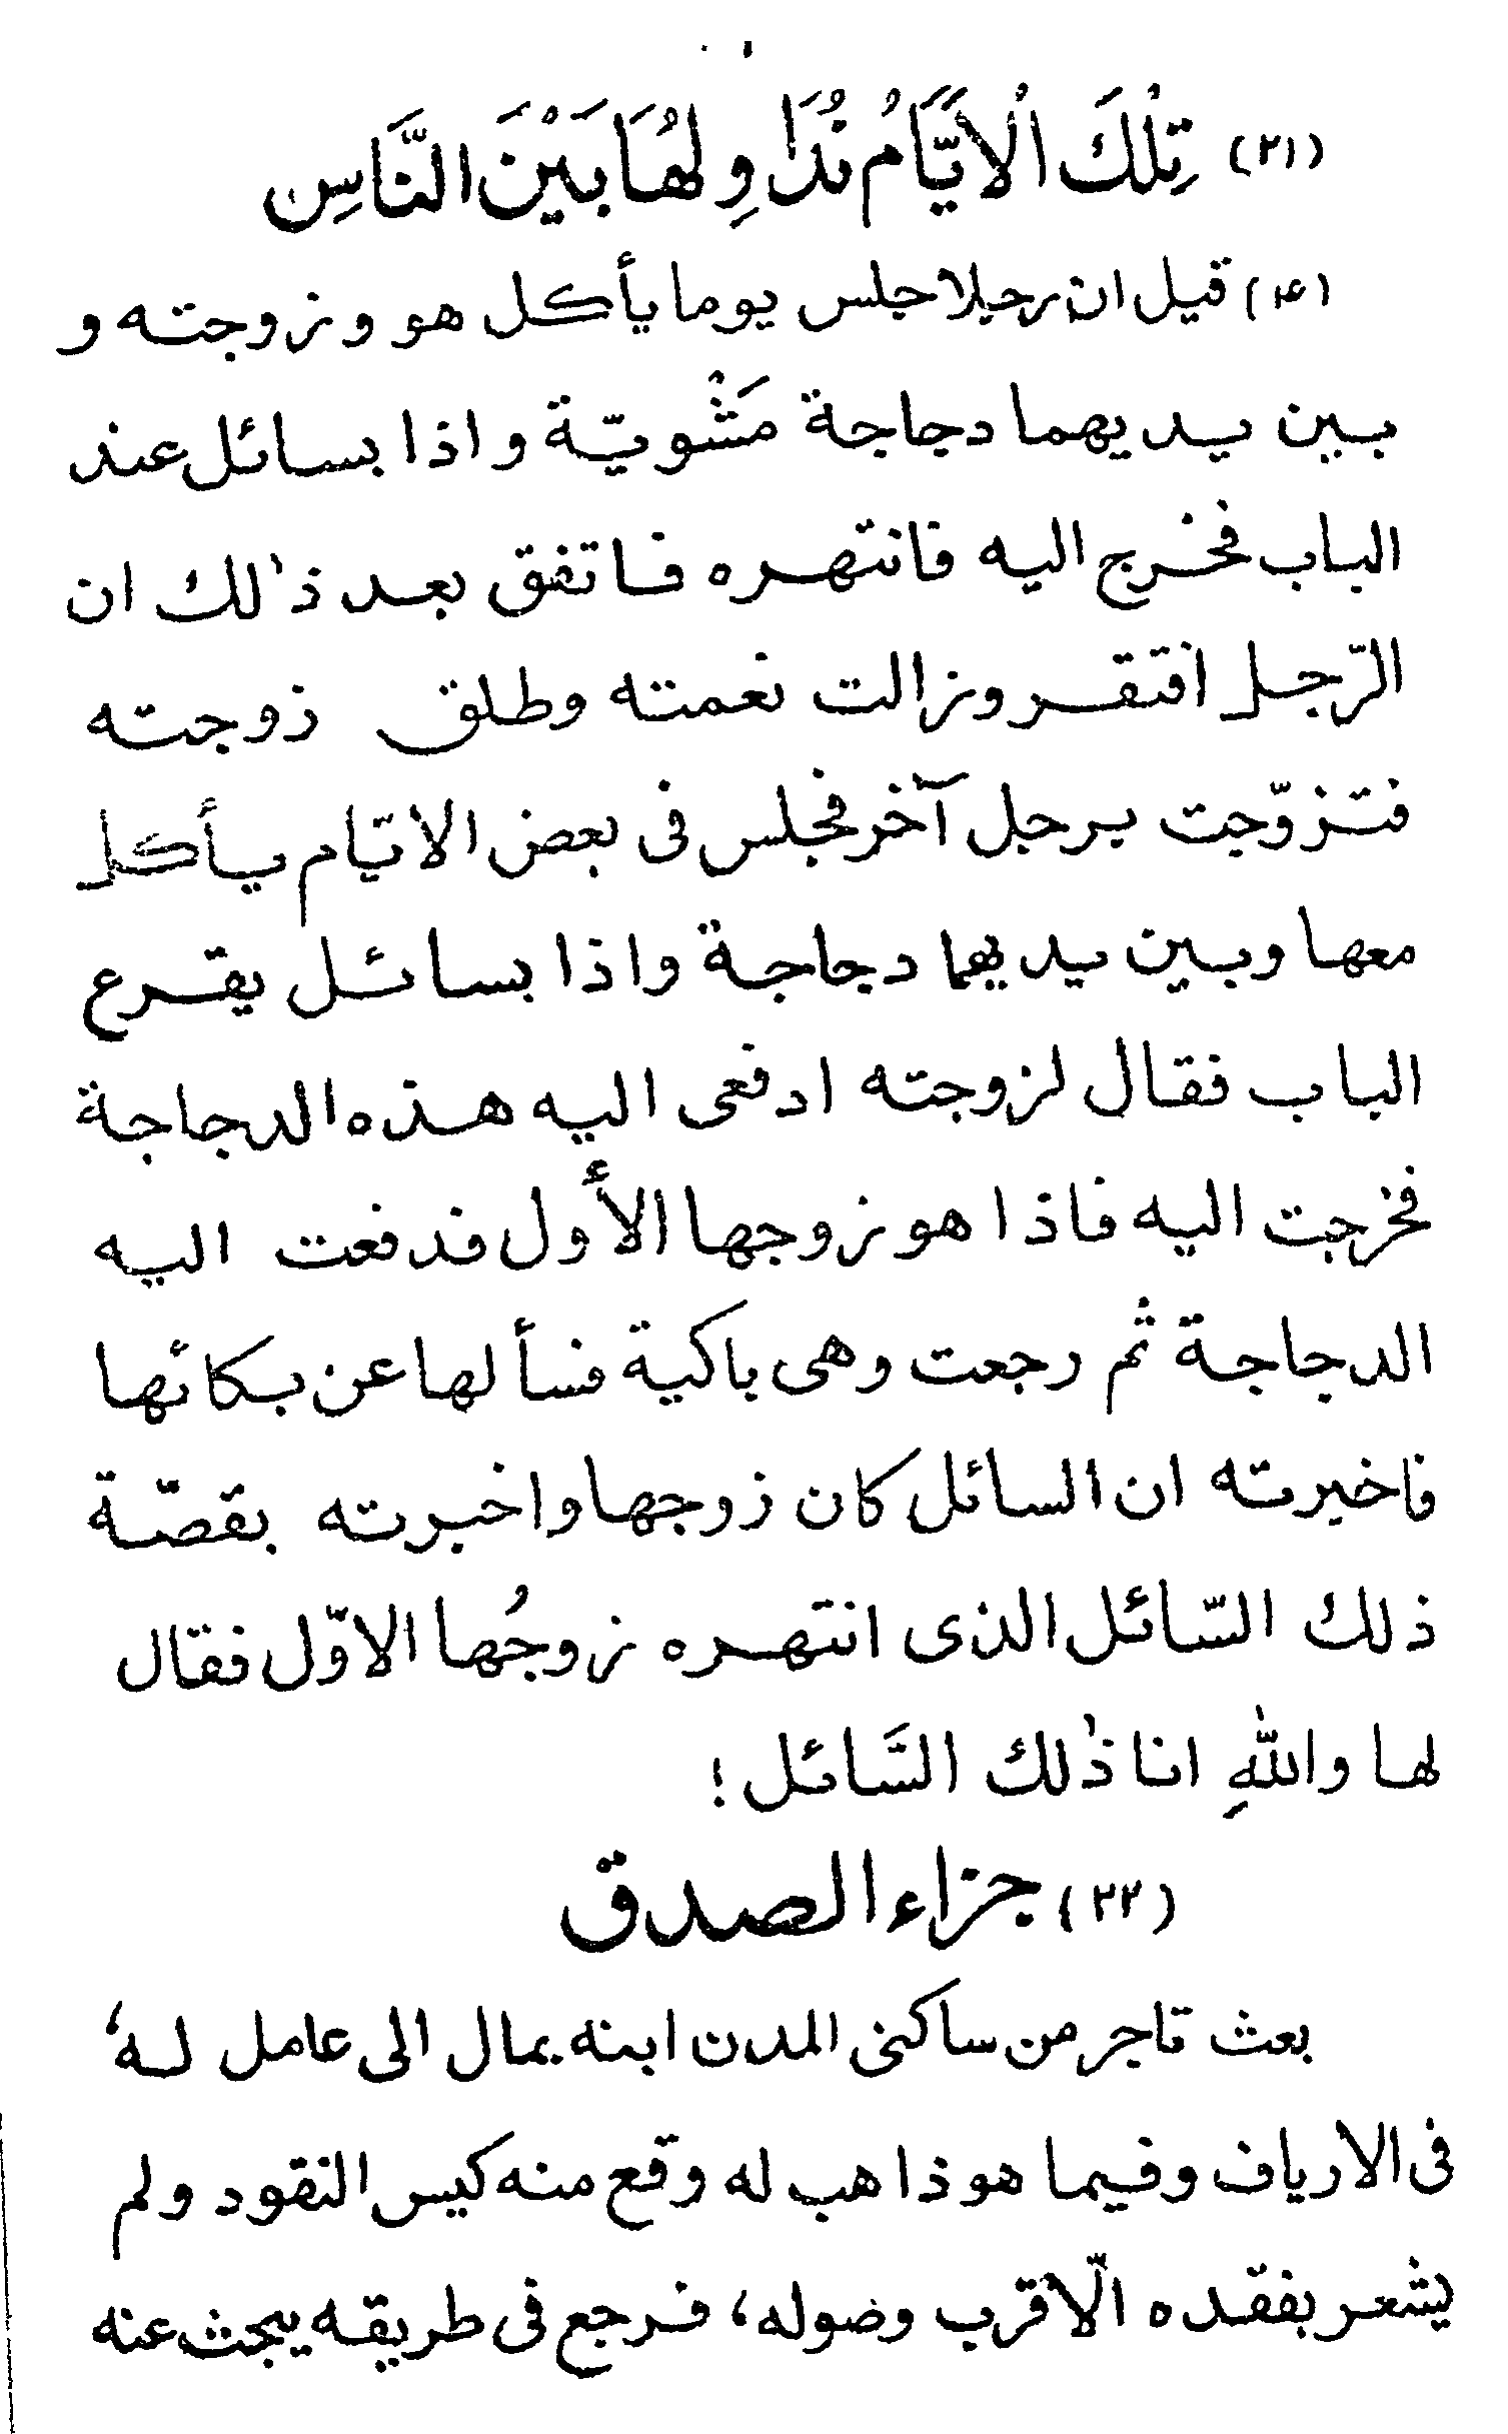 (٢١) تِلْكَ الْاَيَّامُ نُدَاوِلُهَا بَيْنَ النَّاسِ
قيل ان رجلا جلس يوما يأكل هو وزوجته و
بين يديهما دجاجة مَشْويّة واذا بسائل عند
الباب فخرج اليه فانتهره فاتفق بعد ذٰلك ان
الرّجل افتقر وزالت نعمته وطلق زوجته
فتزوّجت برجل آخر فجلس فى بعض الايّام يأكل
معها وبين يديهما دجاجة واذا بسائل يقرع
الباب فقال لزوجته ادفعى اليه هذه الدجاجة
فخرجت اليه فاذا هو زوجها الأول فدفعت اليه
الدجاجة ثم رجعت وهى باكية فسألها عن بكائها
فاخبرته ان السائل كان زوجها واخبرته بقصّة
ذلك السّائل الذى انتهره زوجُها الاوّل فقال
لها واللهِ انا ذٰلك السَّائل!
(٢٢) جزاء الصدق
بعث تاجر من ساكنى المدن ابنه بمال الى عامل له،
فى الارياف وفيما هو ذاهب له وقع منه كيس النقود ولم
يشعر بفقده الّا قرب وضوله، فرجع فى طريقه يبحث عنه